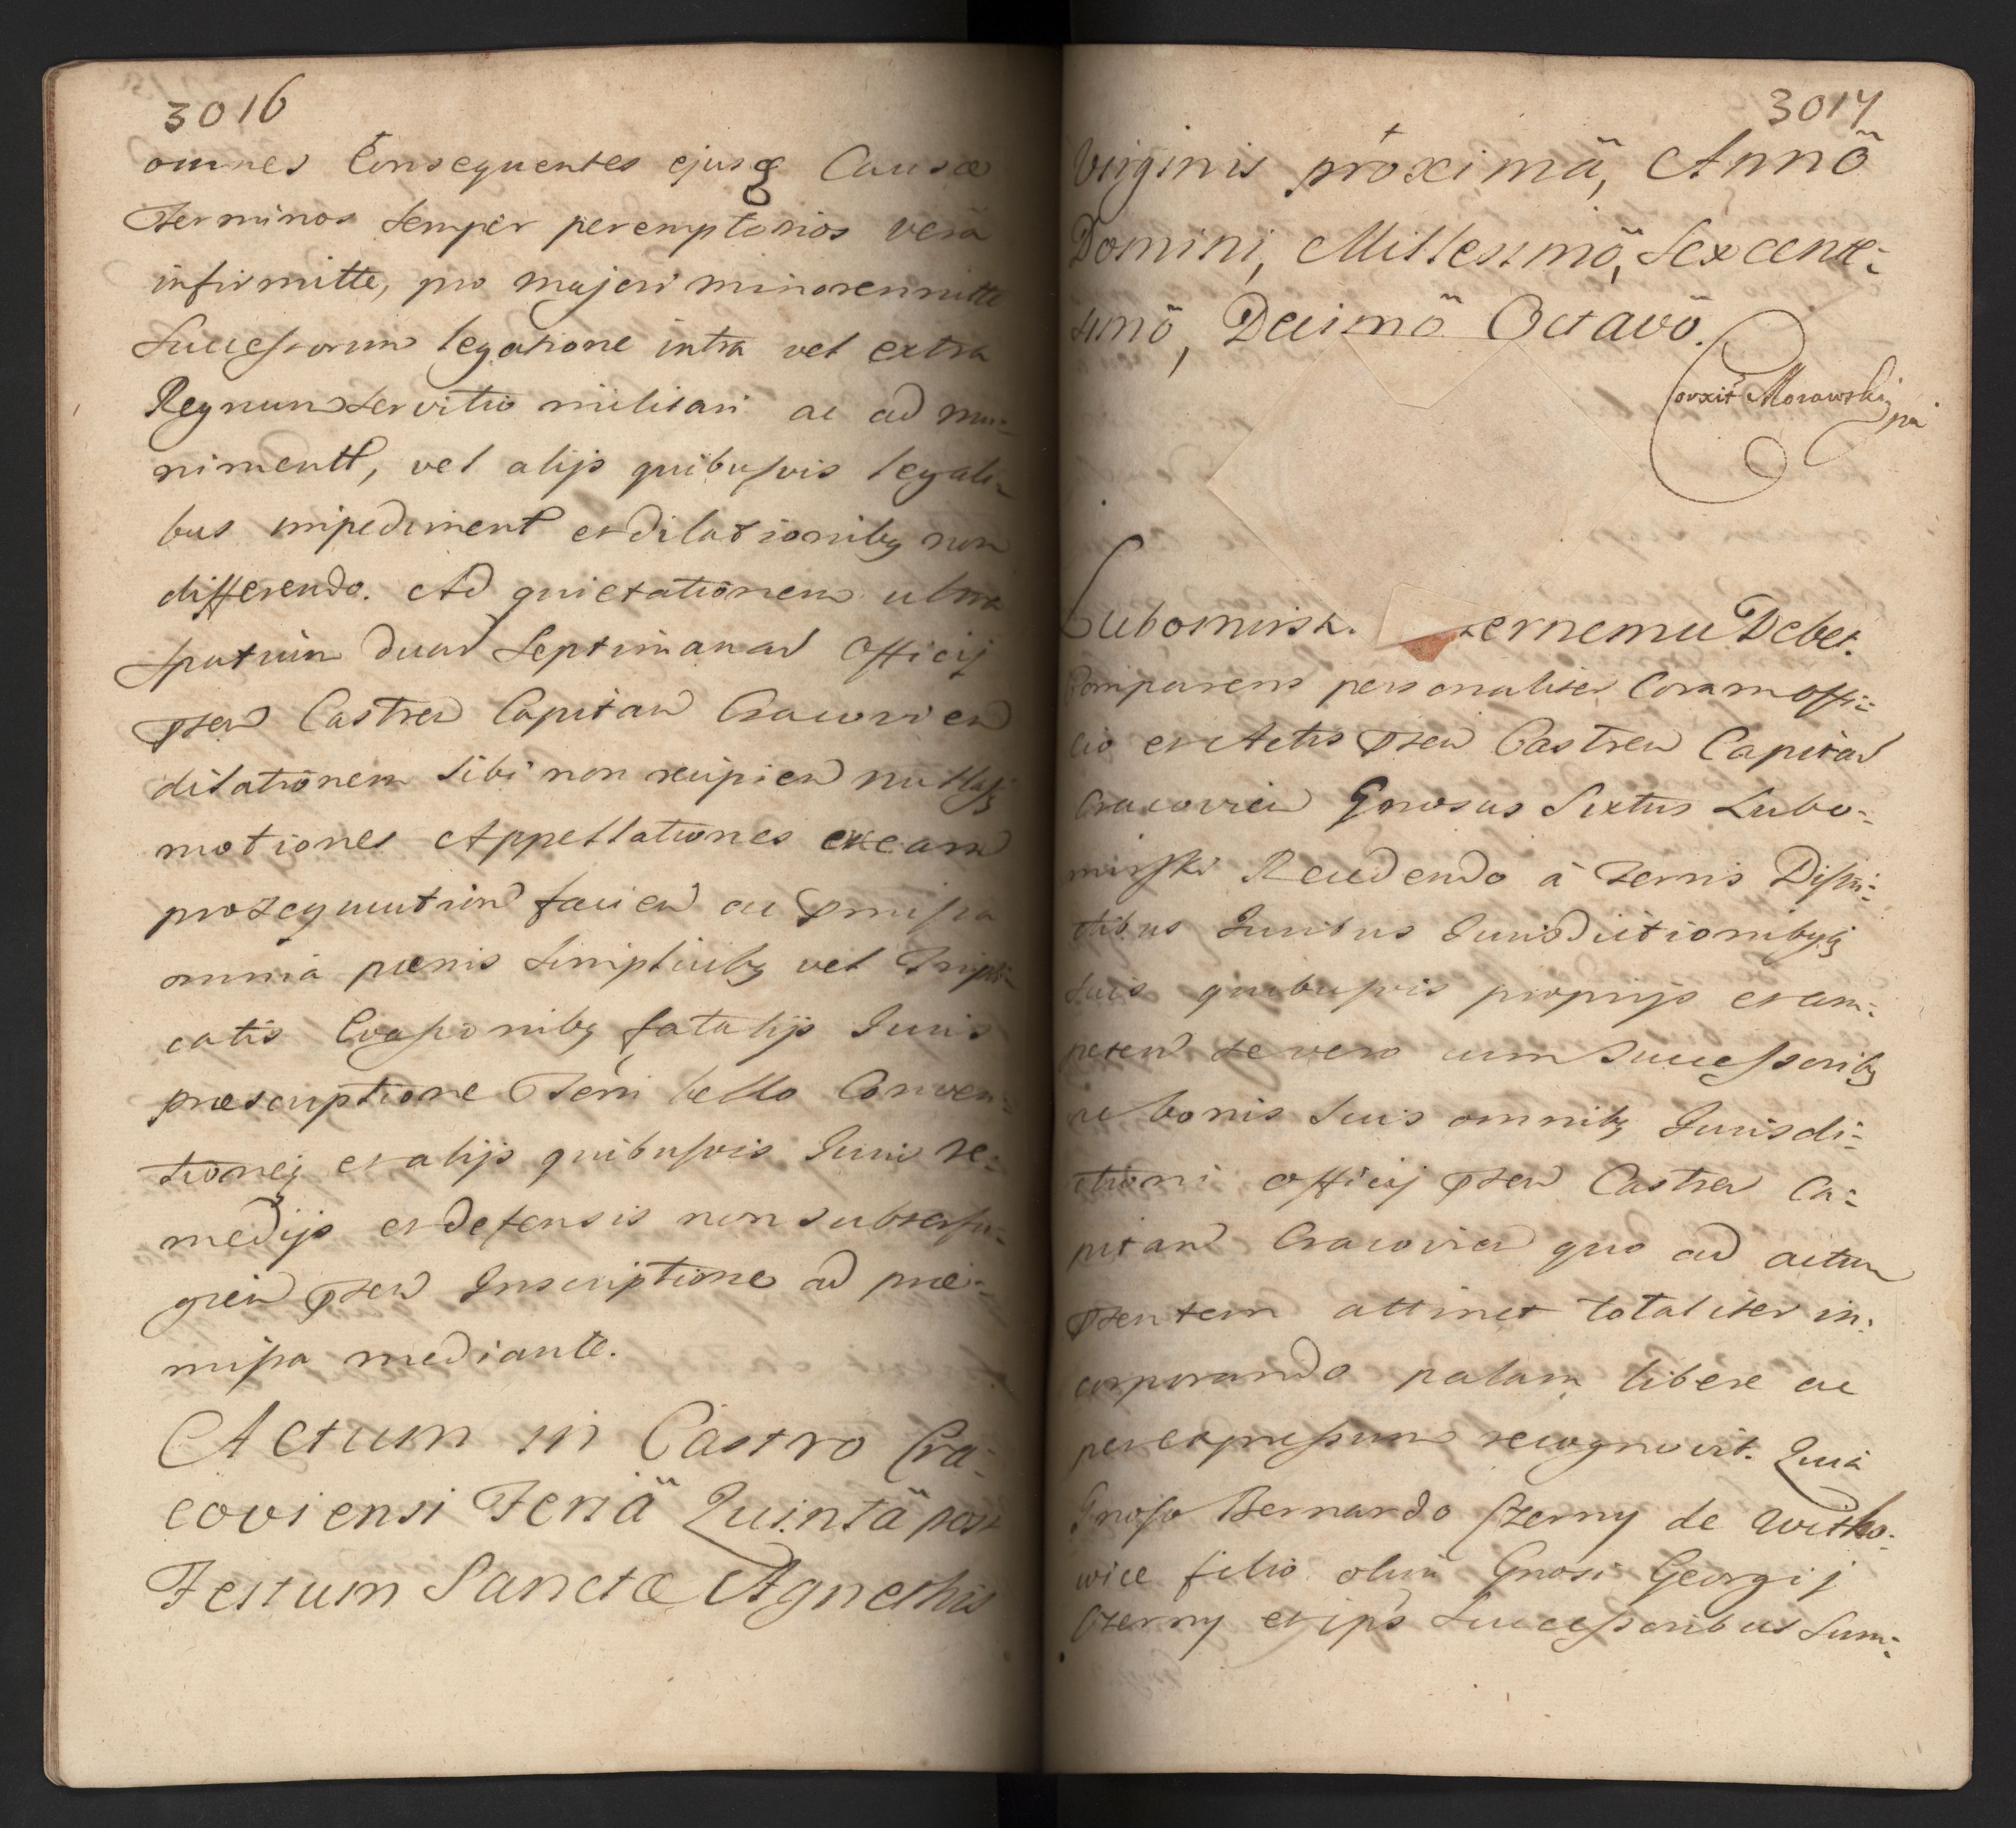 3016
omnes Consequentes ejusq Causæ
Terminos semper peremptorios verä
infirmitte, pro majori minorennitte
Successorum legatione intra vel extra
Regnum servitio militari ac ad mu-
nimentt, vel alijs quibusvis legali-
bus impediment et dilationibq non
differendo. Ad quietationem ultra
spatium duas septimanas Officij
pten Castren Capitan Cracovien
dilationem sibi non recipien nullasq
motiones Appellationes
prosequution facien ac pmissa
omnia pœnis simplicibq vel Tripli-
catis Evasionibq fatalijs Juris
præscriptione Terri bello Conven-
tioneq et alijs quibusvis Juris re-
medijs et defensis non subterfu-
gien pten Inscriptione ad præ-
missa mediante.
Actum in Castro Cra-
coviensi Feriä Quintä post
Festum Sanctæ Agnethis
3017
Virginis próximä, Annö
Domini, Millessimö, Sexcente-
simö, Decimö Octavö.
Corxit Morawski
Lubomirsk. zernemu Debet.
Comparens personaliter Coram offi-
cio et Actis pten Castren Capitan
Cracovien Gnosus Sixtus Lubo-
mirski Recedendo à Terris Distri-
ctibus Juribus Jurisdictionibqq
suis quibusvis proprijs et com-
peten se vero cum Successoribq
ac bonis suis omnibq Jurisdi-
ctioni officij pten Castren Ca-
pitan Cracovien quo ad actum
ptentem attinet totaliter in-
corporando palam libere ac
per expressum recognovit. Quia
Gnoso Bernardo Czerny de Witko-
wice filio olim Gnosi Georgij
Czerny et ips Successoribus Sum-